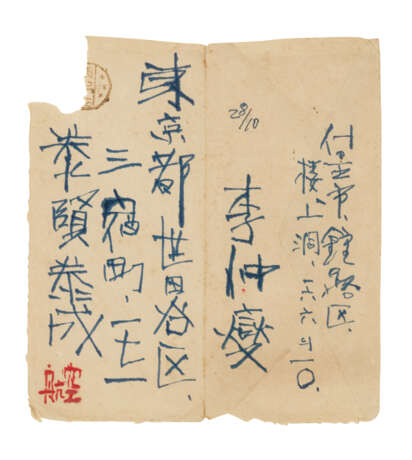 서울市鍾路区.
楼上洞.一六六의一〇.
28/10
李仲燮
東京都世田谷区.
三宿町.一七一
泰賢泰成
航空